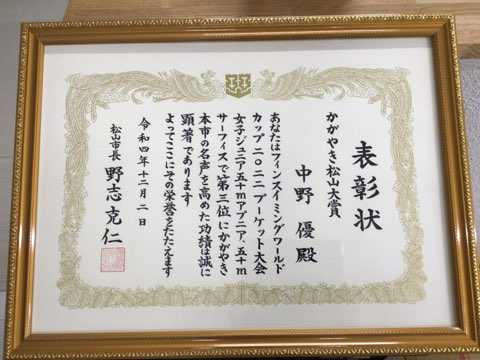 表彰状
かがやき松山大賞
中野 優 殿
あなたはフィンスイミングワールド
カップ二〇二二プーケット大会
女子ジュニア五十mアプニア、五十m
サーフィスで第三位にかがやき
本市の名声を高めた功績は誠に
顕著であります
よってここにその栄誉をたたえます
令和四年十二月二日
松山市長 野志克仁